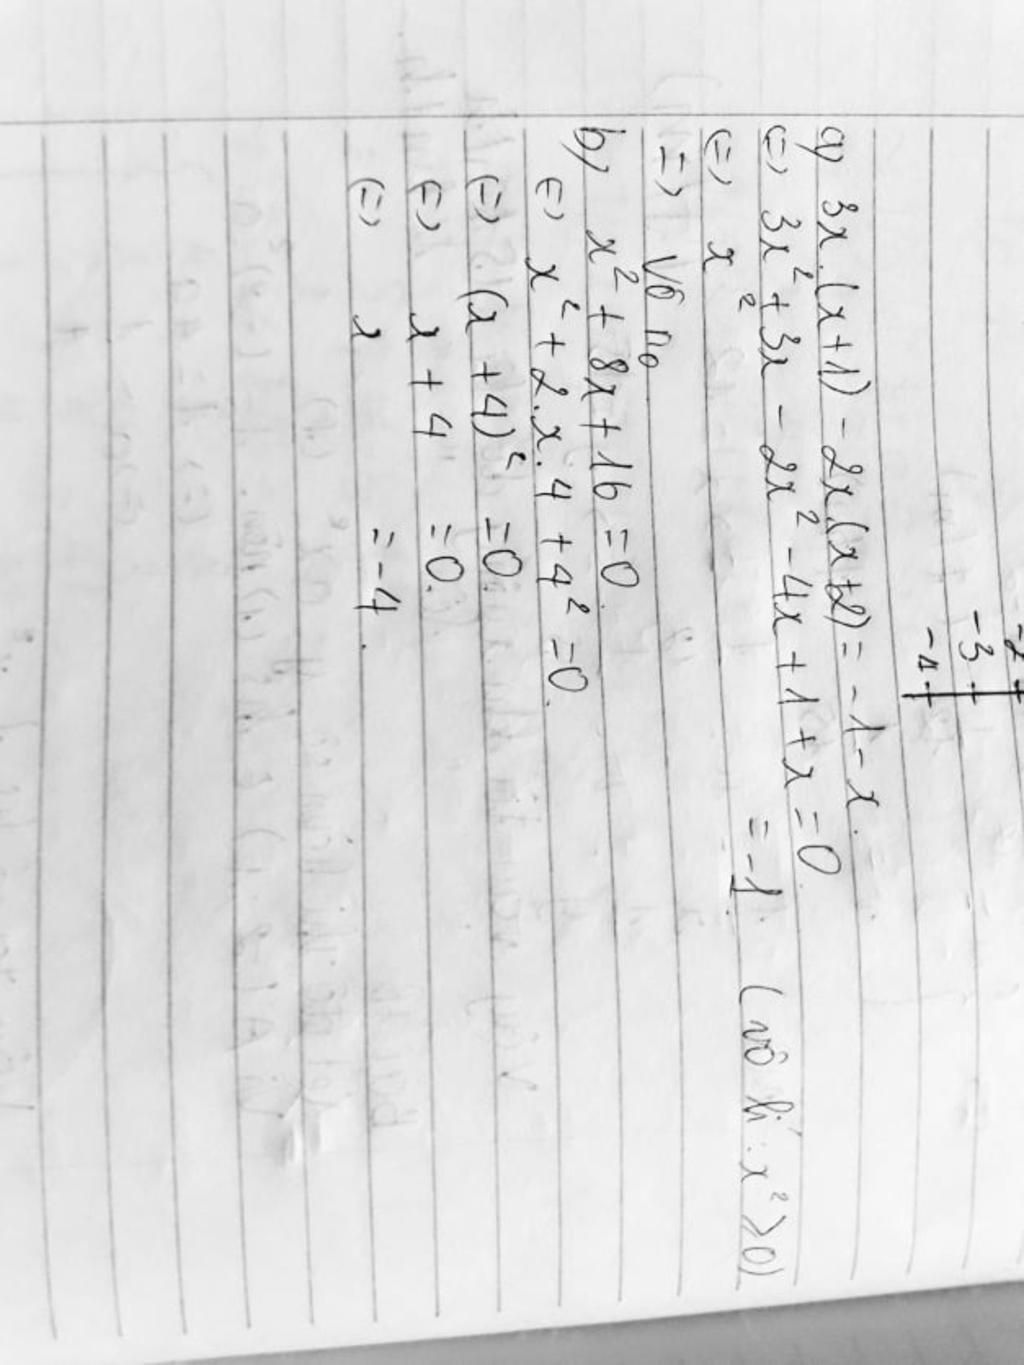 -2
-3
-4
a) 3x.(x+1) - 2x.(x+2) = -1-x.
(=) 3x² + 3x - 2x² - 4x + 1 + x = 0.
(=) x² = -1. (vô lí: x² ⩾ 0)
=) Vô no
b) x² + 8x + 16 = 0
(=) x² + 2.x.4 + 4² = 0.
(=) (x + 4)² = 0.
(=) x + 4 = 0.
(=) x = -4.